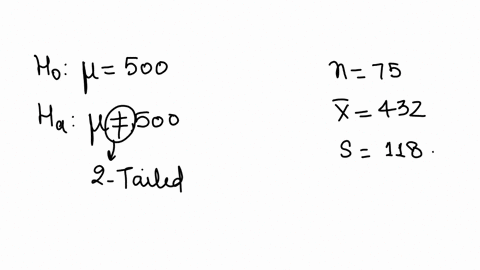 H₀: μ = 500
Hₐ: μ ≠ 500
2-Tailed
n = 75
x̄ = 432
S = 118